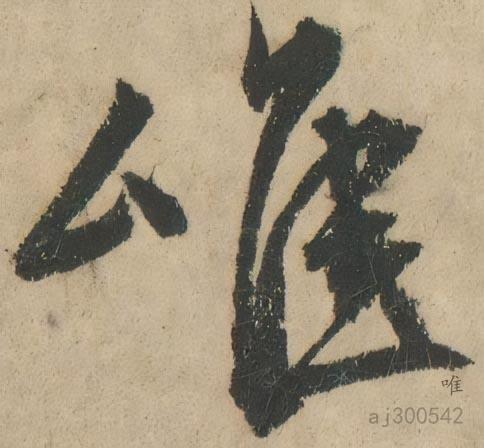 唯
唯
aj300542